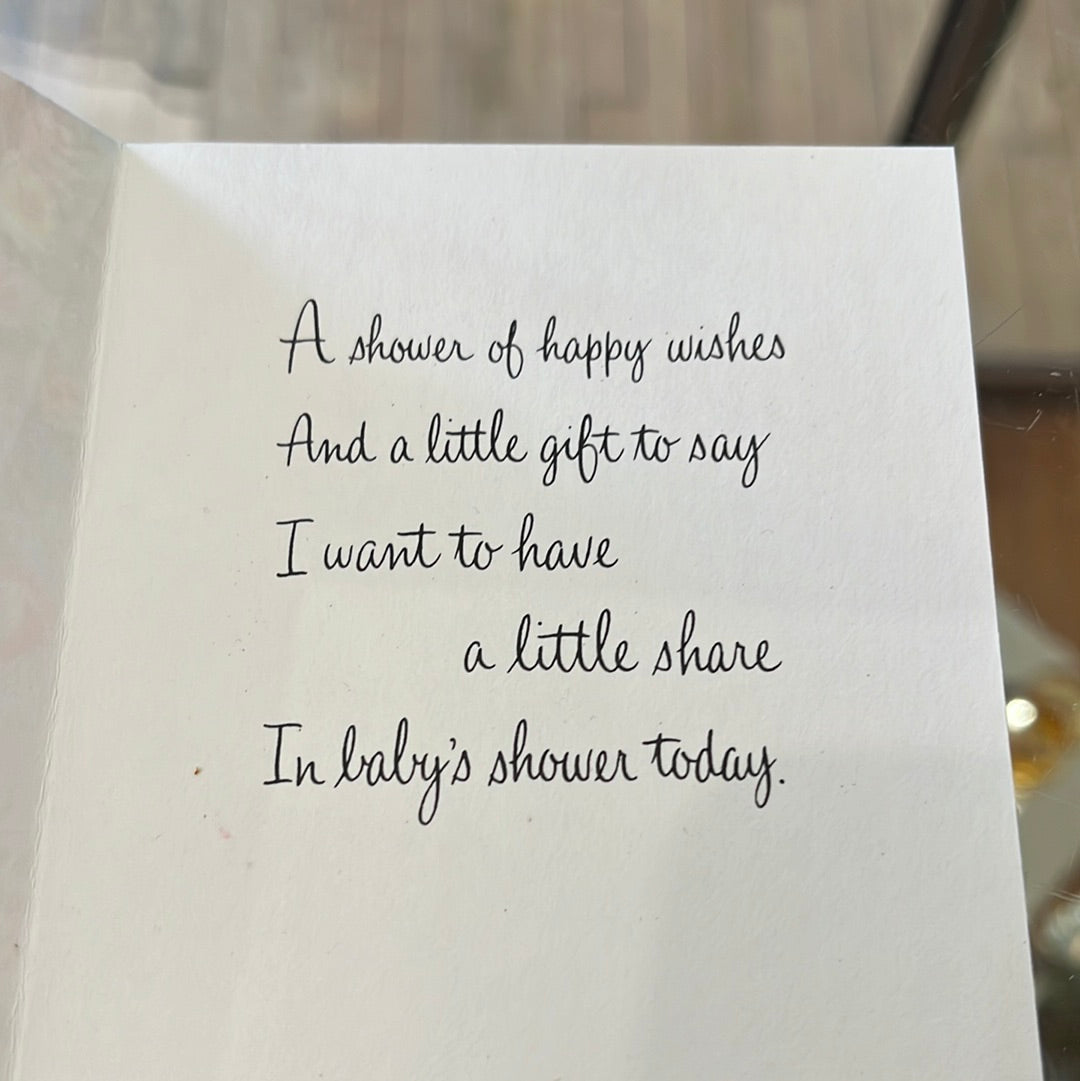 A shower of happy wishes
And a little gift to say
I want to have
a little share
In baby's shower today.